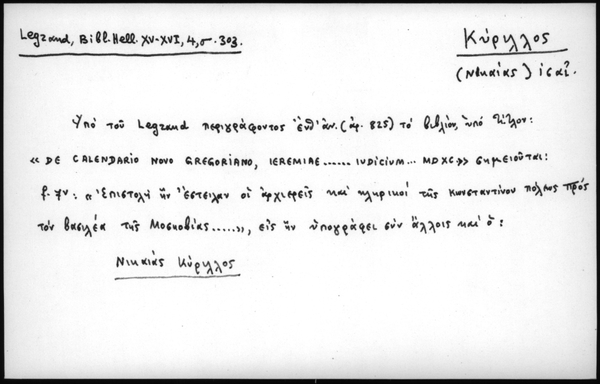 Legrand, Bibl. Hell. XV-XVI, 4, σ. 303.
Κύριλλος
(Νικαίας) ις΄ αἰ.
Ὑπό τοῦ Legrand περιγράφοντος ἐνθ' ἀν. (ἀρ. 825) τό βιβλίον, ὑπό τίτλον:
« DE CALENDARIO NOVO GREGORIANO, IEREMIAE...... IUDICIUM... MDXC» σημειοῦται:
f. 7v: « Ἐπιστολή ἥν ἔστειλαν οἱ ἀρχιερεῖς καί κληρικοί τῆς Κωνσταντίνου πόλεως πρός
τόν βασιλέα τῆς Μοσκοβίας.....», εἰς ἥν ὑπογράφει σύν ἄλλοις καί ὁ:
Νικαίας Κύριλλος